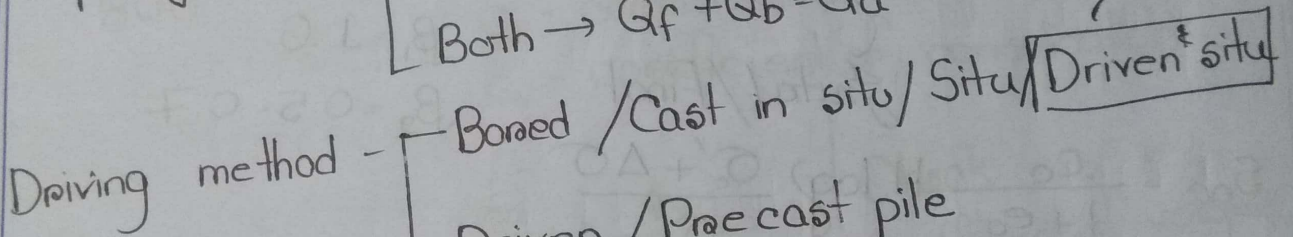 Both → Qf + Qb = Qu
Driving method - Bored / Cast in situ / Situ / Driven & situ
/ Precast pile